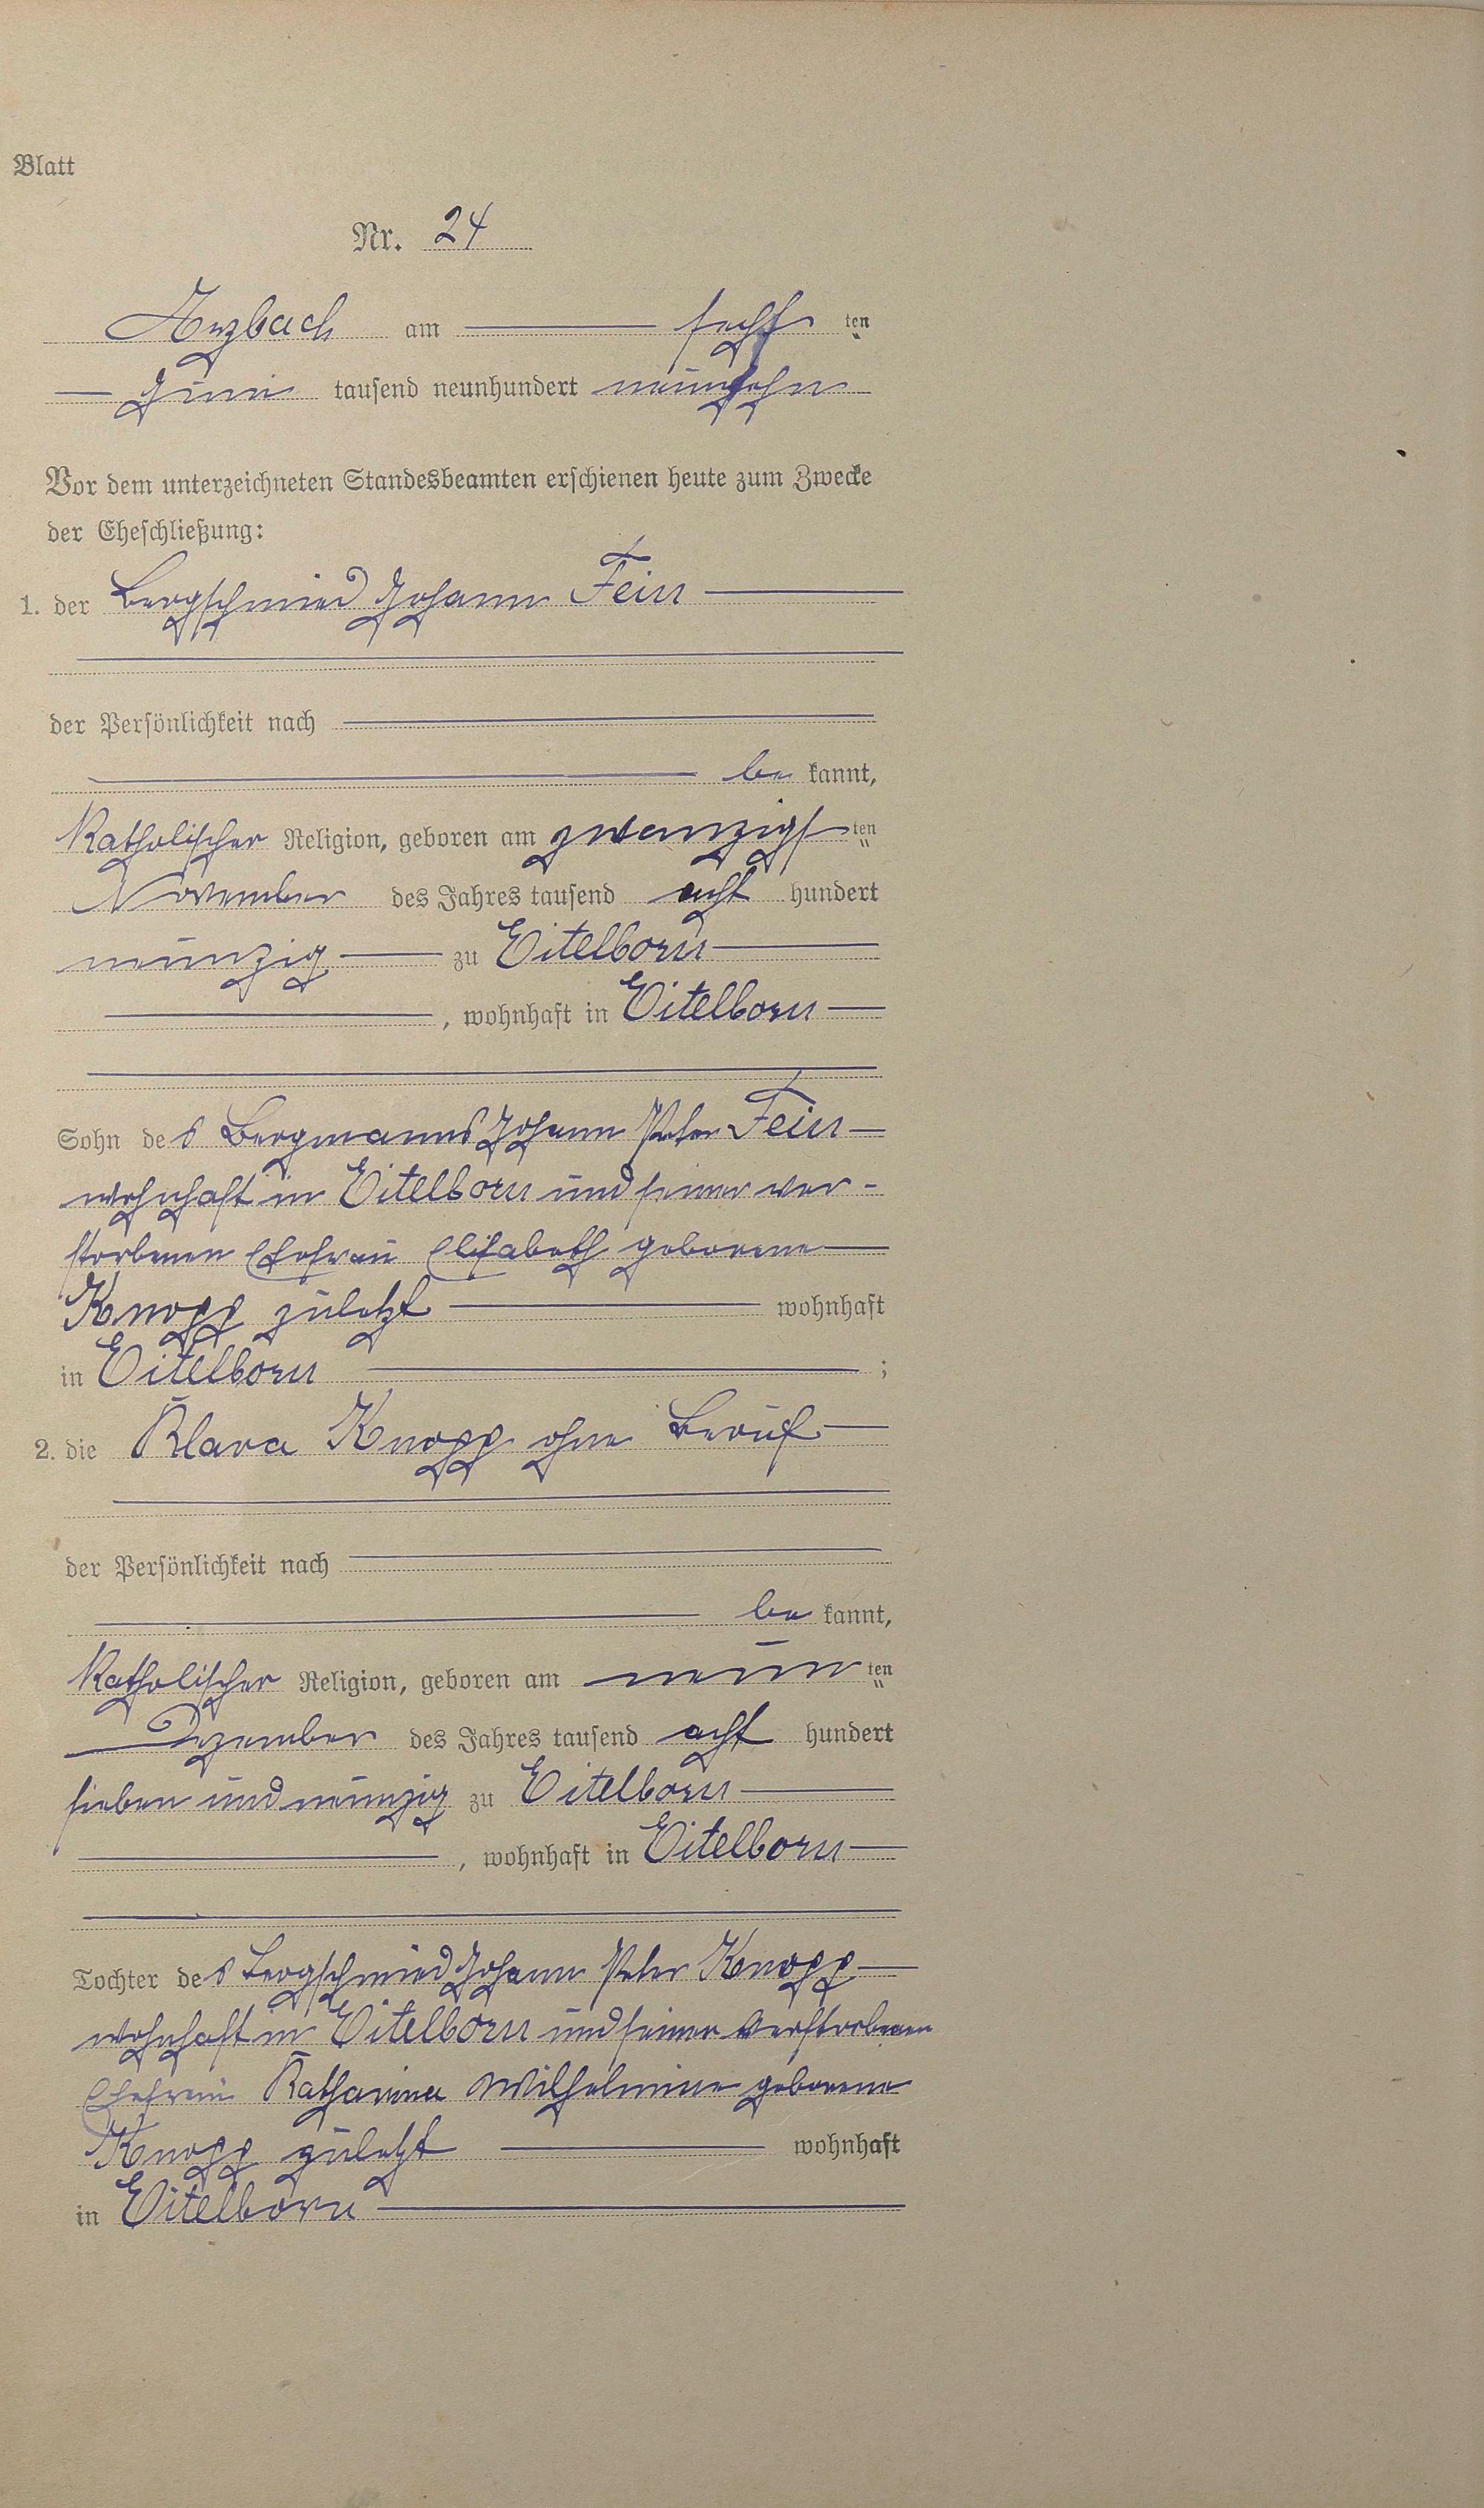 Blatt
Nr. 24
Arzbach am sechs ten
Juni tausend neunhundert neunzehn
Vor dem unterzeichneten Standesbeamten erschienen heute zum Zwecke
der Eheschließung:
1. der Bergschmied Johann Fein
der Persönlichkeit nach
be kannt,
Katholischer Religion, geboren am zwanzigs ten
November des Jahres tausend acht hundert
neunzig zu Eitelborn
, wohnhaft in Eitelborn
Sohn des Bergmanns Johann Peter Fein
wohnhaft in Eitelborn und seiner ver-
storbenen Ehefrau Elisabeth geborene
Knopp zuletzt wohnhaft
in Eitelborn ;
2. die Klara Knopp ohne Beruf
der Persönlichkeit nach
be kannt,
Katholischer Religion, geboren am neun ten
Dezember des Jahres tausend acht hundert
sieben und neunzig zu Eitelborn
, wohnhaft in Eitelborn
Tochter des Bergschmied Johann Peter Knopp
wohnhaft in Eitelborn und seiner verstorbenen
Ehefrau Katharina Wilhelmine geborene
Knopp zuletzt wohnhaft
in Eitelborn